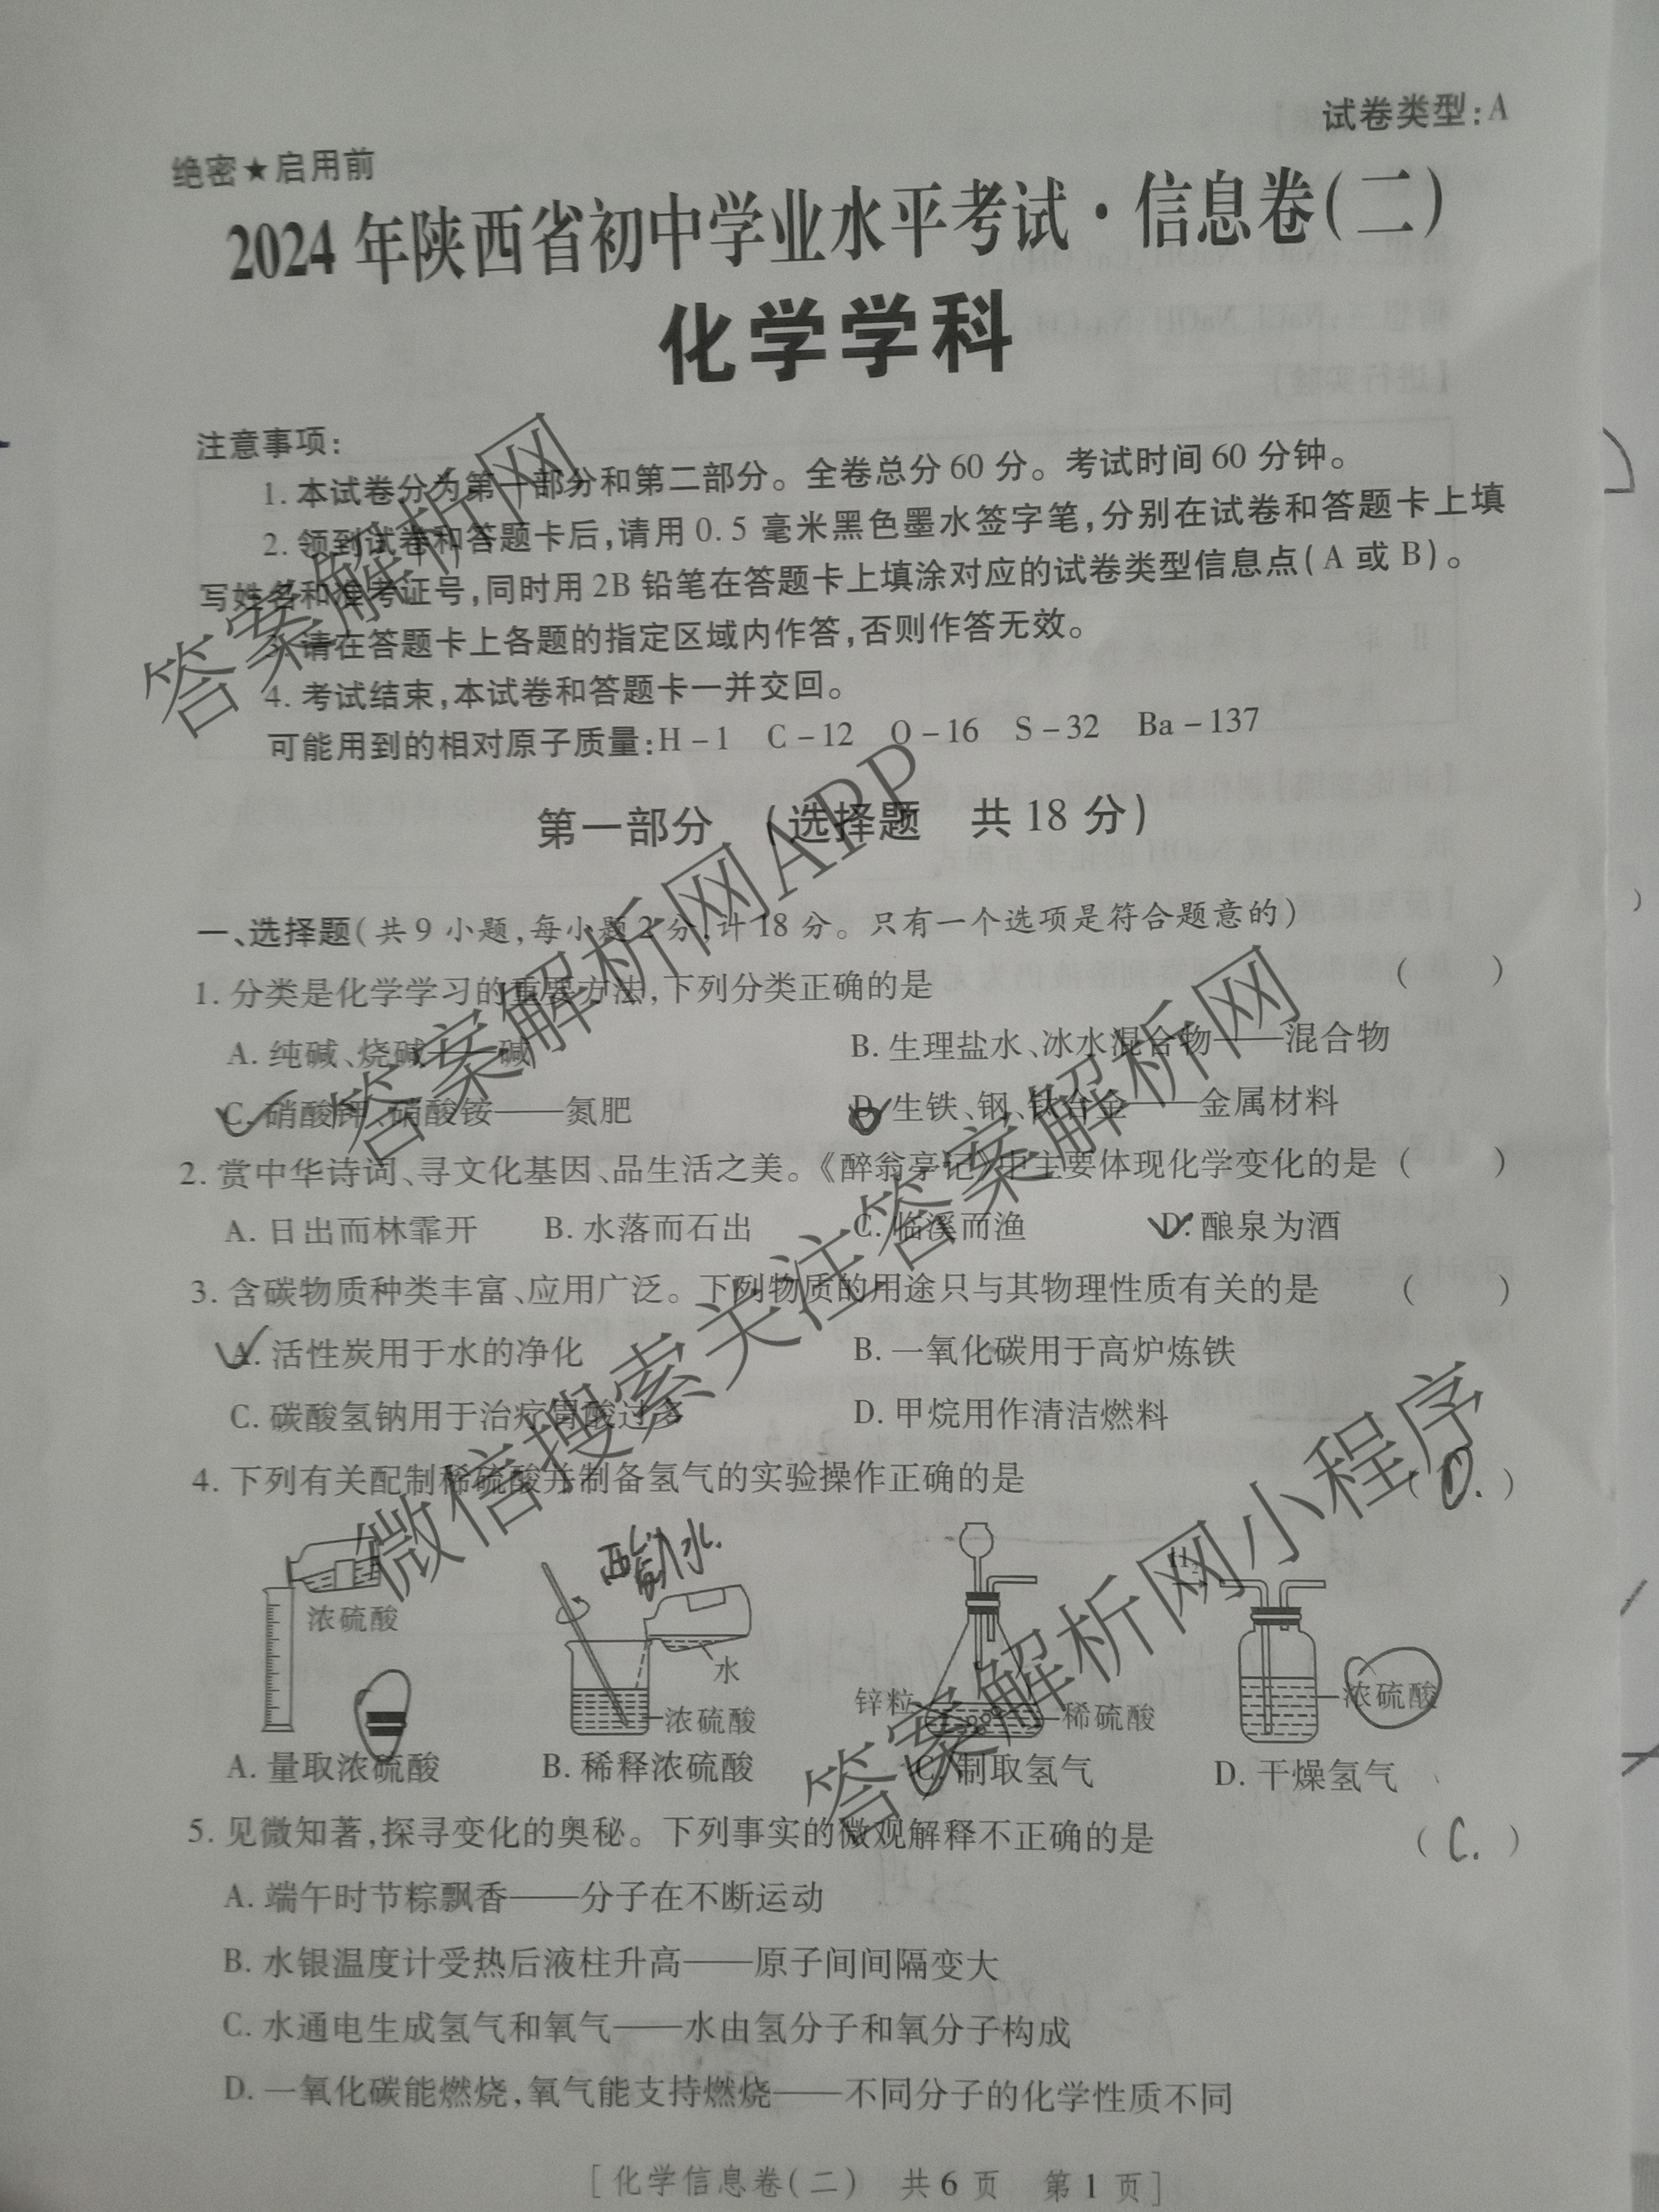 试卷类型:A
绝密★启用前
2024年陕西省初中学业水平考试·信息卷(二)
化学学科
注意事项:
1.本试卷分为第一部分和第二部分。全卷总分60分。考试时间60分钟。
2.领到试卷和答题卡后,请用0.5毫米黑色墨水签字笔,分别在试卷和答题卡上填
写姓名和准考证号,同时用2B铅笔在答题卡上填涂对应的试卷类型信息点(A或B)。
3.请在答题卡上各题的指定区域内作答,否则作答无效。
4.考试结束,本试卷和答题卡一并交回。
可能用到的相对原子质量:H-1 C-12 O-16 S-32 Ba-137
第一部分 (选择题 共18分)
一、选择题(共9小题,每小题2分,计18分。只有一个选项是符合题意的)
1.分类是化学学习的重要方法,下列分类正确的是 ( )
A.纯碱、烧碱——碱 B.生理盐水、冰水混合物——混合物
C.硝酸钾、硝酸铵——氮肥 D.生铁、钢、钛合金——金属材料
2.赏中华诗词、寻文化基因、品生活之美。《醉翁亭记》中主要体现化学变化的是 ( )
A.日出而林霏开 B.水落而石出 C.临溪而渔 D.酿泉为酒
3.含碳物质种类丰富、应用广泛。下列物质的用途只与其物理性质有关的是 ( )
A.活性炭用于水的净化 B.一氧化碳用于高炉炼铁
C.碳酸氢钠用于治疗胃酸过多 D.甲烷用作清洁燃料
4.下列有关配制稀硫酸并制备氢气的实验操作正确的是 (D.)
酸入水.
H₂
浓硫酸
水
浓硫酸
锌粒
稀硫酸
浓硫酸
A.量取浓硫酸 B.稀释浓硫酸 C.制取氢气 D.干燥氢气
5.见微知著,探寻变化的奥秘。下列事实的微观解释不正确的是 (C.)
A.端午时节粽飘香——分子在不断运动
B.水银温度计受热后液柱升高——原子间间隔变大
C.水通电生成氢气和氧气——水由氢分子和氧分子构成
D.一氧化碳能燃烧,氧气能支持燃烧——不同分子的化学性质不同
[化学信息卷(二) 共6页 第1页]
答案解析网
答案解析网APP
微信搜索关注答案解析网
答案解析网小程序